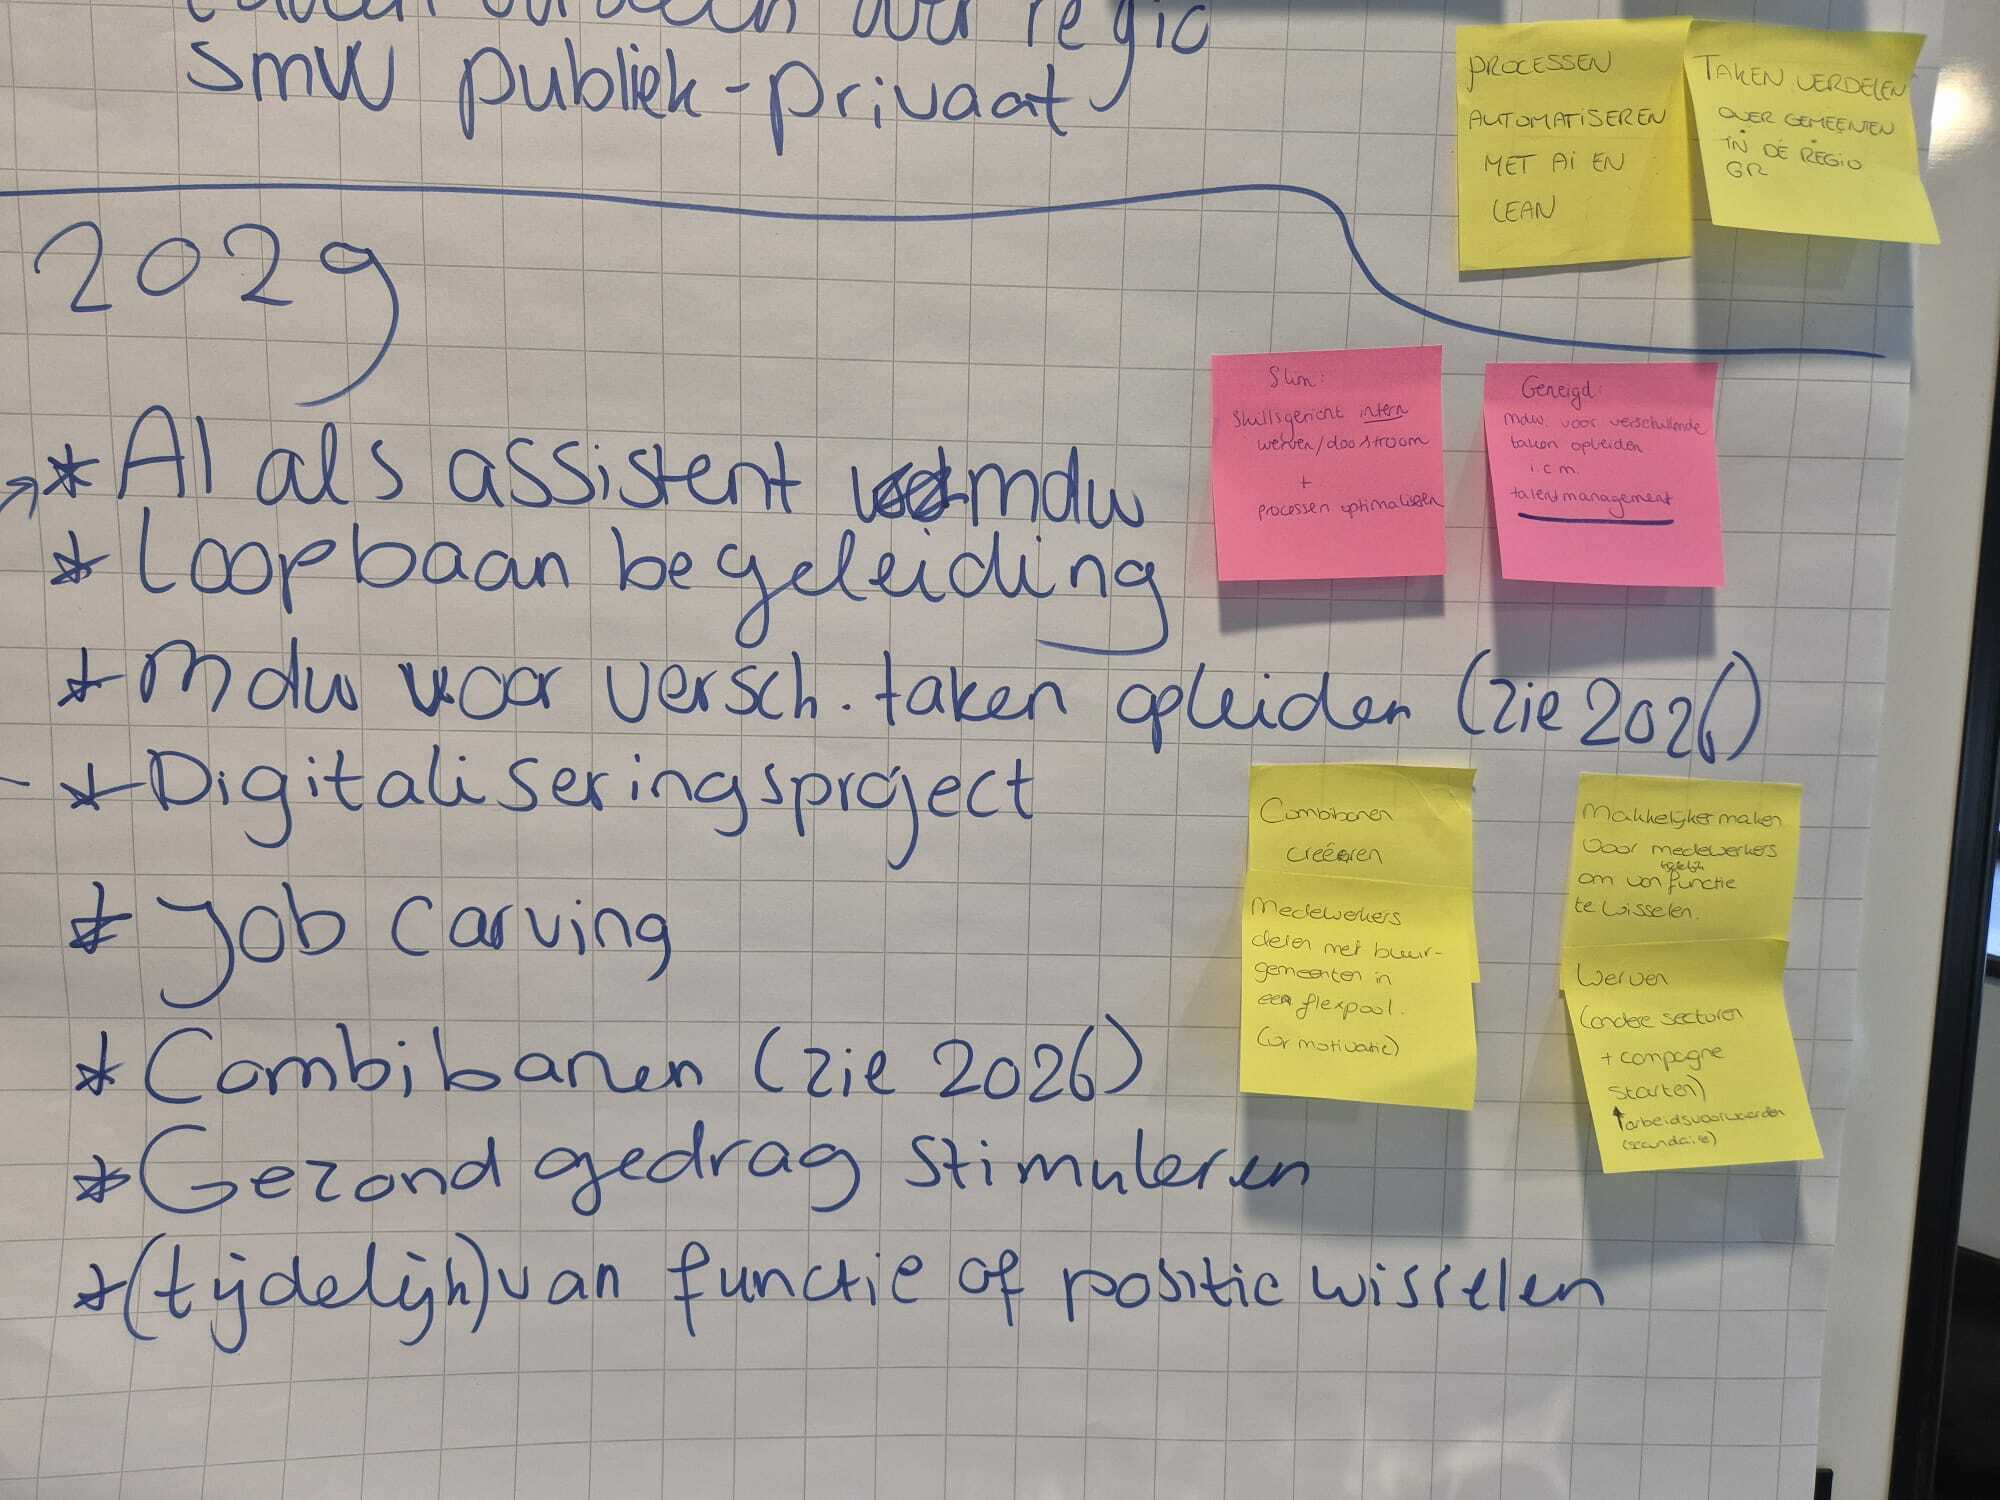 taken verdelen over regio
SMW publiek-privaat
PROCESSEN
AUTOMATISEREN
MET AI EN
LEAN
TAKEN VERDELEN
OVER GEMEENTEN
IN DE REGIO
GR
2029
* AI als assistent mdw
* Loopbaan begeleiding
* Mdw voor versch. taken opleiden (zie 2026)
* Digitaliseringsproject
* Job carving
* Combibanen (zie 2026)
* Gezond gedrag stimuleren
* (tijdelijk) van functie of positie wisselen
Slim:
Skillsgericht intern
werven/doostroom
+
processen optimaliseren
Geneigd:
mdw. voor verschillende
taken opleiden
i.c.m.
talentmanagement
Combibanen
creëeren
Medewerkers
delen met buur-
gemeenten in
een flexpool.
(wr motivatie)
Makkelijker maken
voor medewerkers
om van functie
te wisselen.
Werven
(andere sectoren
+ campagne
starten)
↑ arbeidsvoorwaarden
(secundaire)